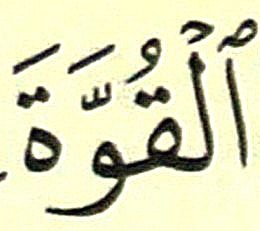 ٱلْقُوَّةَ